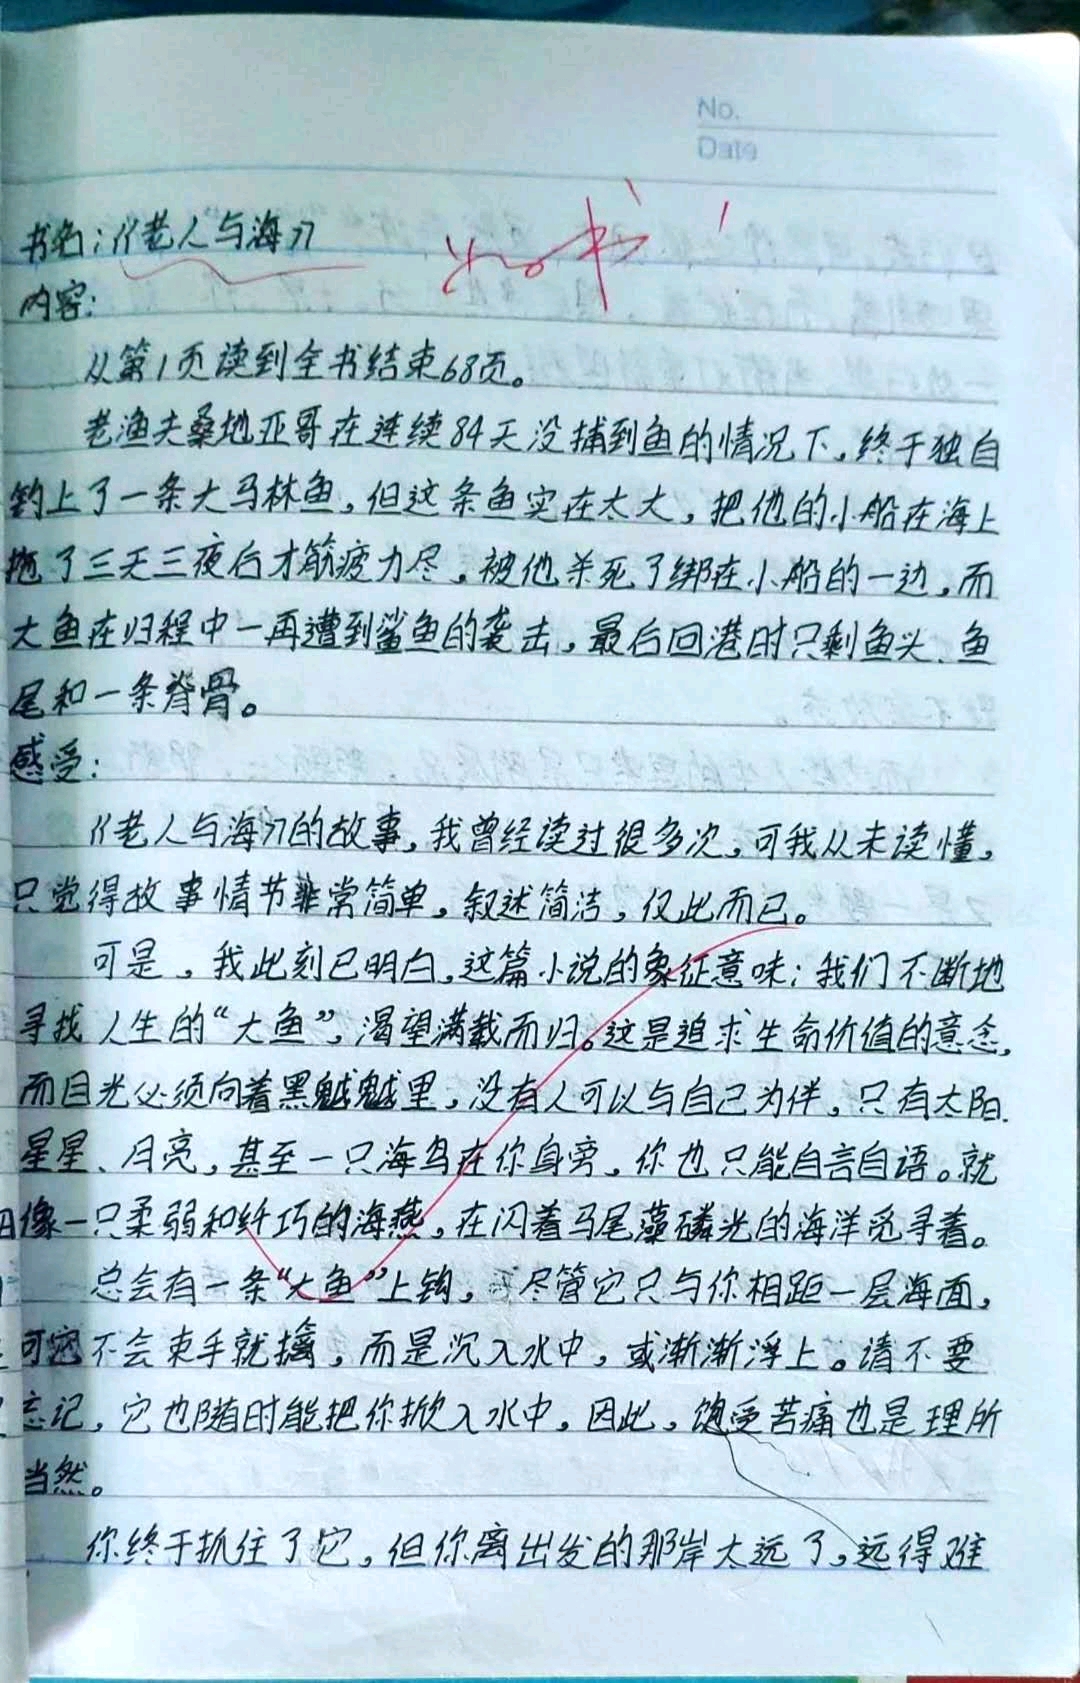 No.
Date
书名：《老人与海》
好书！
内容：
从第1页读到全书结束68页。
老渔夫桑地亚哥在连续84天没捕到鱼的情况下，终于独自
钓上了一条大马林鱼，但这条鱼实在太大，把他的小船在海上
拖了三天三夜后才筋疲力尽，被他杀死了绑在小船的一边，而
大鱼在归程中一再遭到鲨鱼的袭击，最后回港时只剩鱼头、鱼
尾和一条脊骨。
感受：
《老人与海》的故事，我曾经读过很多次，可我从未读懂，
只觉得故事情节非常简单，叙述简洁，仅此而已。
可是，我此刻已明白，这篇小说的象征意味：我们不断地
寻找人生的“大鱼”，渴望满载而归。这是追求生命价值的意念，
而目光必须向着黑魆魆里，没有人可以与自己为伴，只有太阳、
星星、月亮，甚至一只海鸟在你身旁，你也只能自言自语。就
像一只柔弱和纤巧的海燕，在闪着马尾藻磷光的海洋觅寻着。
总会有一条“大鱼”上钩，尽管它只与你相距一层海面，
可它不会束手就擒，而是沉入水中，或渐渐浮上。请不要
忘记，它也随时能把你掀入水中，因此，饱受苦痛也是理所
当然。
你终于抓住了它，但你离出发的那岸太远了，远得难